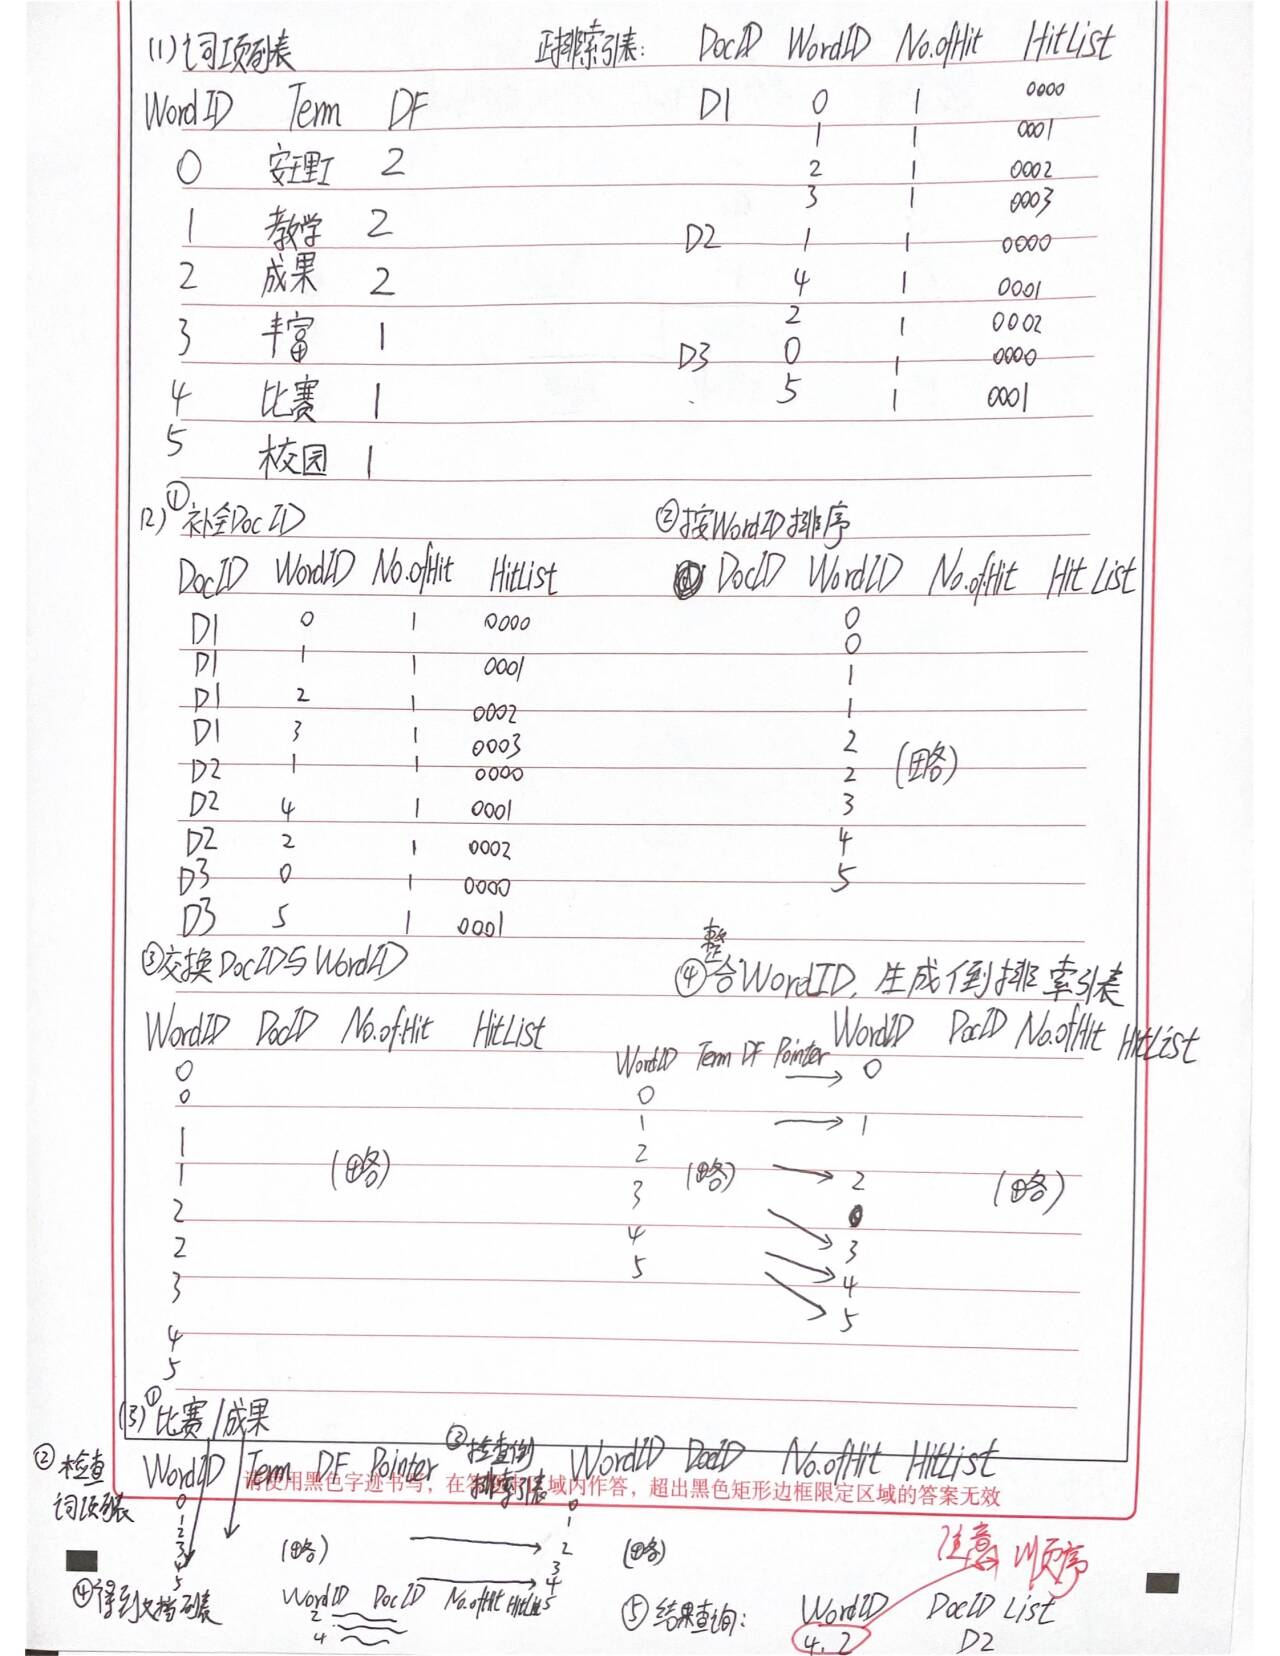 (1)词项列表
WordID Term DF
0 安理工 2
1 教学 2
2 成果 2
3 丰富 1
4 比赛 1
5 校园 1
正排索引表: DocID WordID No.ofHit HitList
D1 0 1 0000
1 1 0001
2 1 0002
3 1 0003
D2 1 1 0000
4 1 0001
2 1 0002
D3 0 1 0000
5 1 0001
(2)①补全DocID
DocID WordID No.ofHit HitList
D1 0 1 0000
D1 1 1 0001
D1 2 1 0002
D1 3 1 0003
D2 1 1 0000
D2 4 1 0001
D2 2 1 0002
D3 0 1 0000
D3 5 1 0001
②按WordID排序
DocID WordID No.ofHit Hit List
0
0
1
1
2
2 (略)
3
4
5
③交换DocID与WordID
WordID DocID No.of.Hit HitList
0
0
1
1 (略)
2
2
3
4
5
④整合WordID,生成倒排索引表
WordID Term DF Pointer
0
1
2
3 (略)
4
5
WordID DocID No.ofHit HitList
0
1
2 (略)
3
4
5
(3)①比赛/成果
②检查词项列表
WordID Term DF Pointer
0
1
2
3 (略)
4
5
③检查倒排索引表
WordID DocID No.ofHit HitList
0
1
2 (略)
3
4
5
请使用黑色字迹书写,在答题卡区域内作答,超出黑色矩形边框限定区域的答案无效
④得到文档列表
WordID DocID No.ofHit HitList
2
4
⑤结果查询:
WordID DocID List
4.2 D2
注意顺序